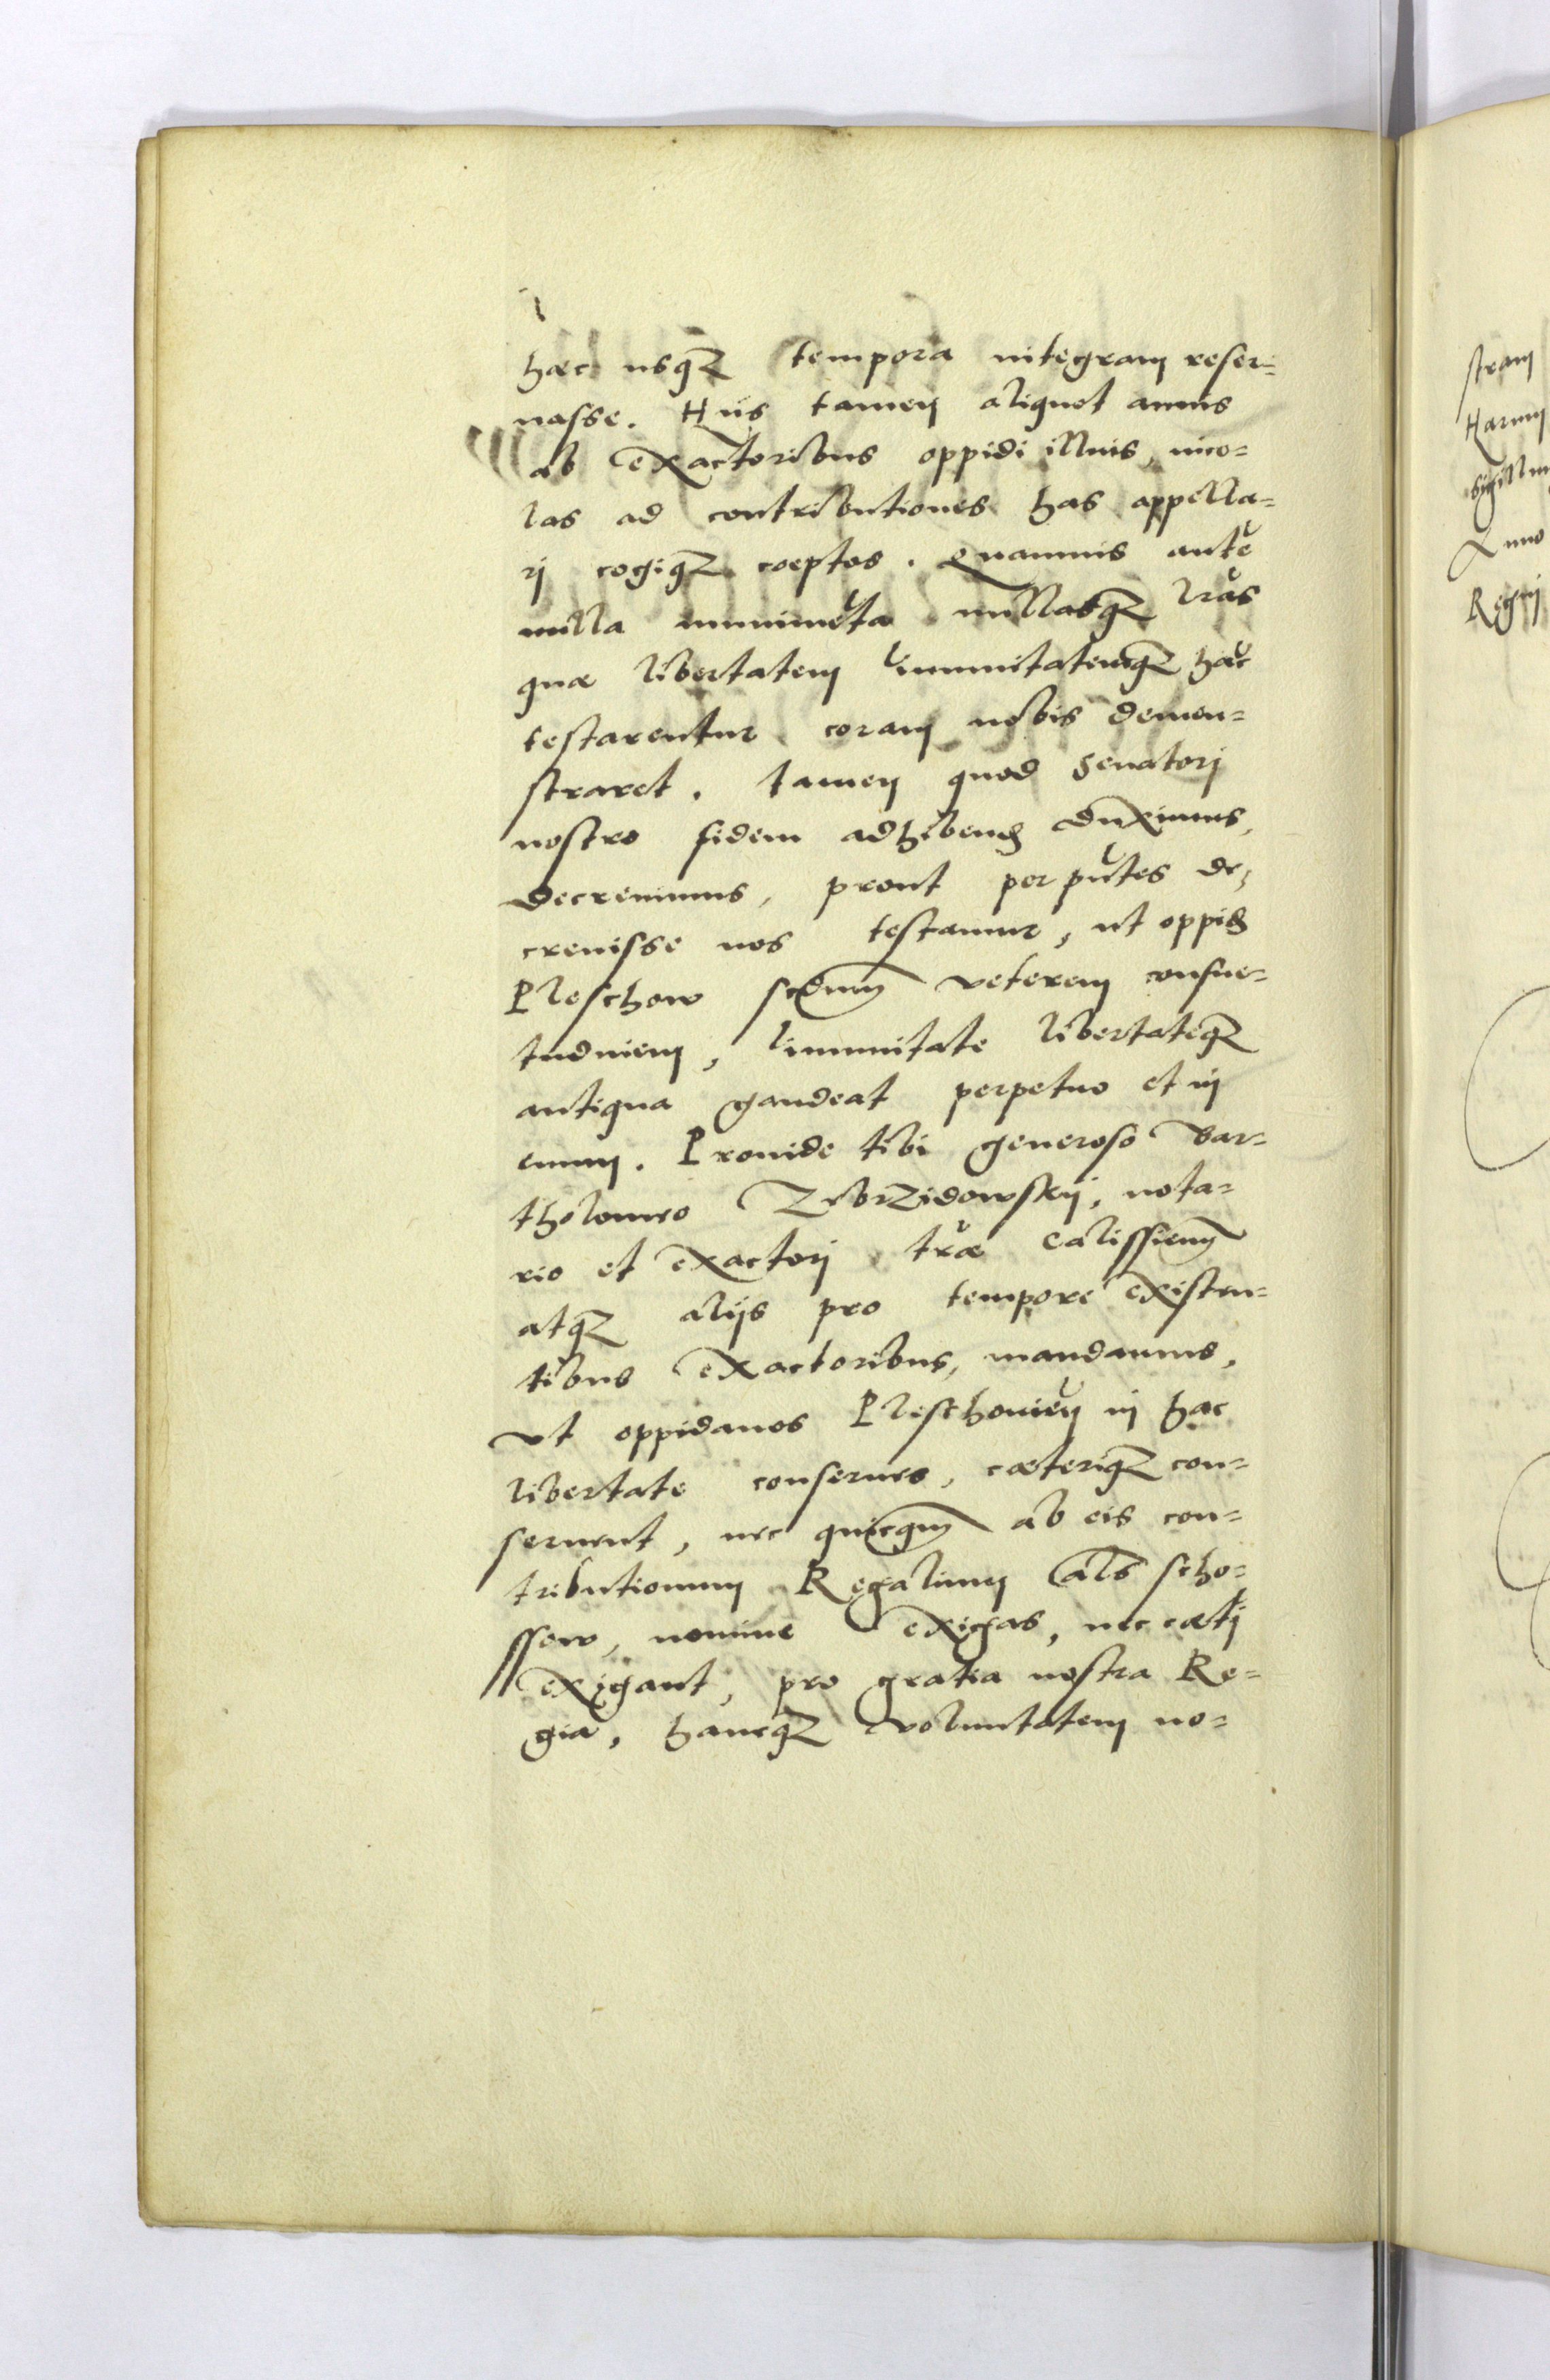 hæc usq3 tempora integram reser=
uasse. Hijs tamen aliquot annis
ab exactoribus oppidi illius, inco=
las ad contributiones has appella=
rj cogiq3 coeptos. Quamuis autē
nulla munimēta nullasq3 lr̄as
quæ libertatem immunitatemq3 hāc
testarentur coram nobis demon=
straret. tamen quod Senatorj
nostro fidem adhibend duximus,
decreuimus, prout per pn̄tes de=
creuisse nos testamur, ut oppid
Pleschow scdum veterem consue=
tudinem, immunitate libertateq3
antiqua gaudeat perpetuo et in
euum. Prouide tibi generoso Bar=
tholomeo Zebrzidowskij, nota=
rio et exactorj tr̄æ Calissien
atq3 alijs pro tempore existen=
tibus exactoribus, mandamus,
vt oppidanos Pleschouien in hac
libertate conserues, cæteriq3 con=
seruent, nec quicqm ab eis con=
tributionum Regalium als scho=
ssow, nomine exigas, nec cætj
exigant, pro gratia nostra Re=
gia, hancq3 voluntatem no=
stram
Harum
sigillum
Anno
Regnj